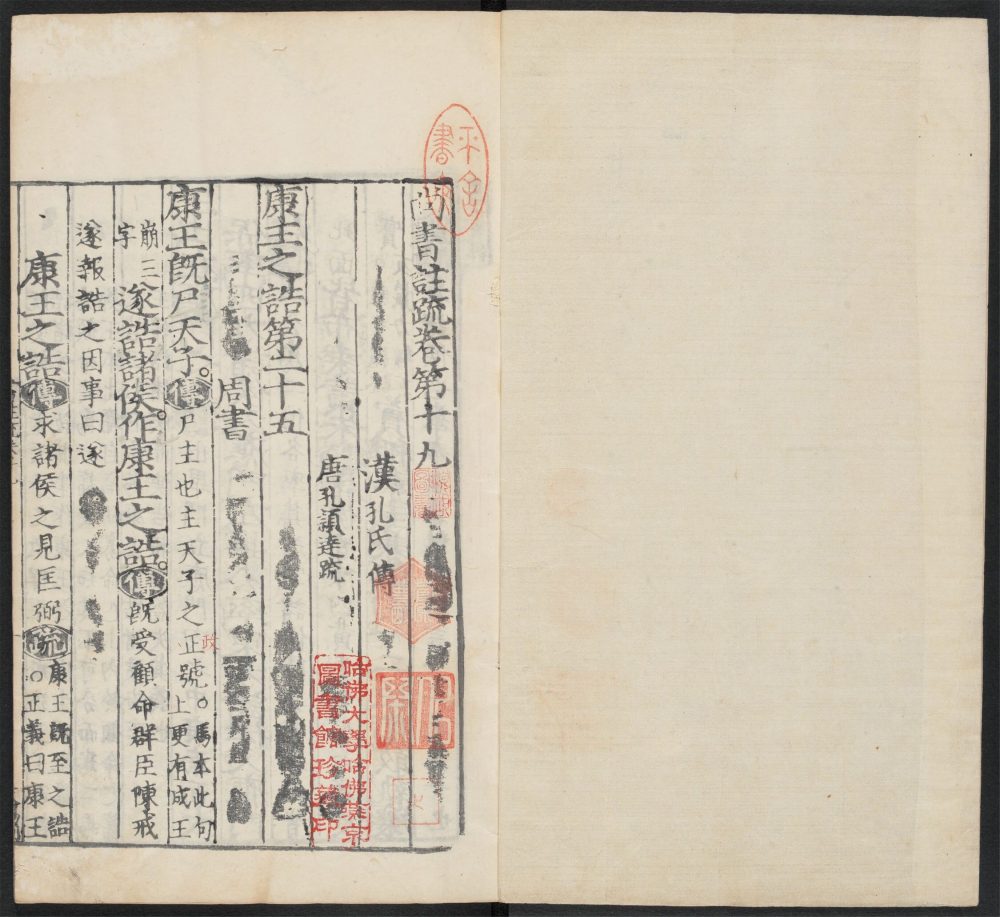 尚書註疏卷第十九
漢孔氏傳
唐孔穎達疏
康王之誥第二十五
周書
康王旣尸天子。傳尸主也主天子之正號。馬本此句上更有成王
政
崩三字遂誥諸侯作康王之誥。傳旣受顧命群臣陳戒
遂報誥之因事曰遂
康王之誥傳求諸侯之見匡弼疏康王旣至之誥○正義曰康王
哈佛大學哈佛燕京
圖書館珍藏印